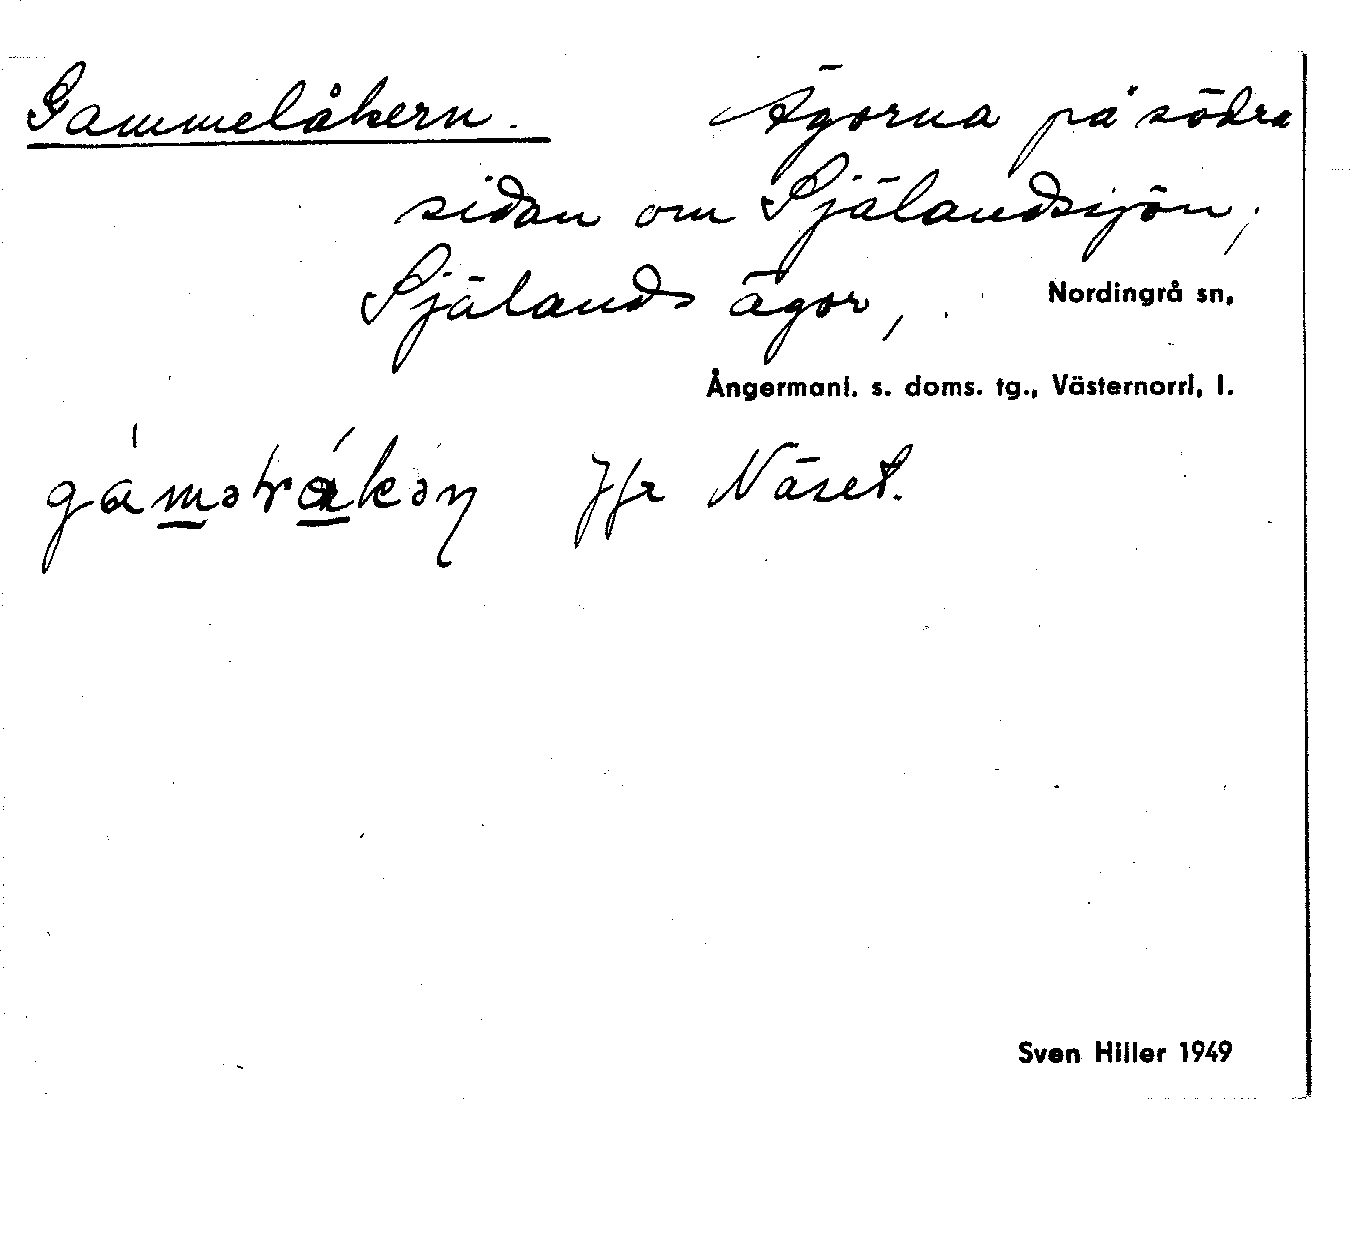 Gammelåkern. Ägorna på södra
sidan om Själandsjön,
Själands ägor, Nordingrå sn,
Ångermanl. s. doms. tg., Västernorrl, l.
Jfr Näset.
Sven Hiller 1949